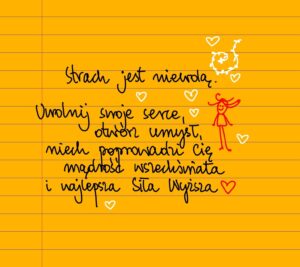 Strach jest niewolą.
Uwolnij swoje serce,
otwórz umysł,
niech poprowadzi Cię
mądrość wszechświata
i najlepsza Siła Wyższa